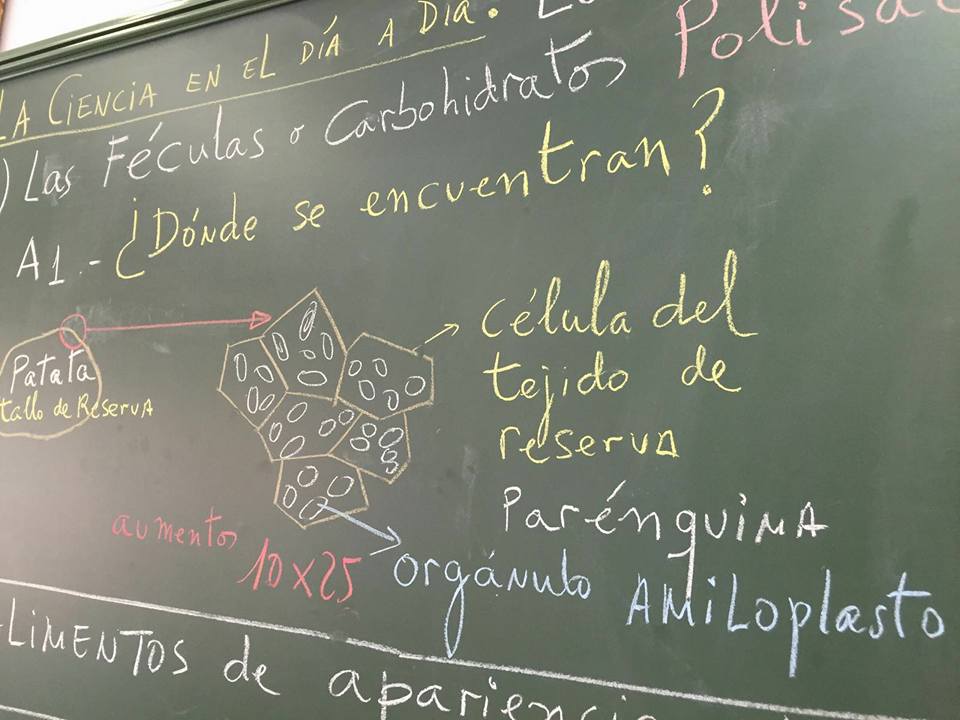 LA CIENCIA EN EL DÍA A DÍA.
) Las Féculas o Carbohidratos Polisac
A1.- ¿Dónde se encuentran?
Patata
tallo de Reserva
célula del
tejido de
reserva
Parénquima
aumentos 10x25
orgánulo AMiLoplasto
LIMENTOS de aparienc